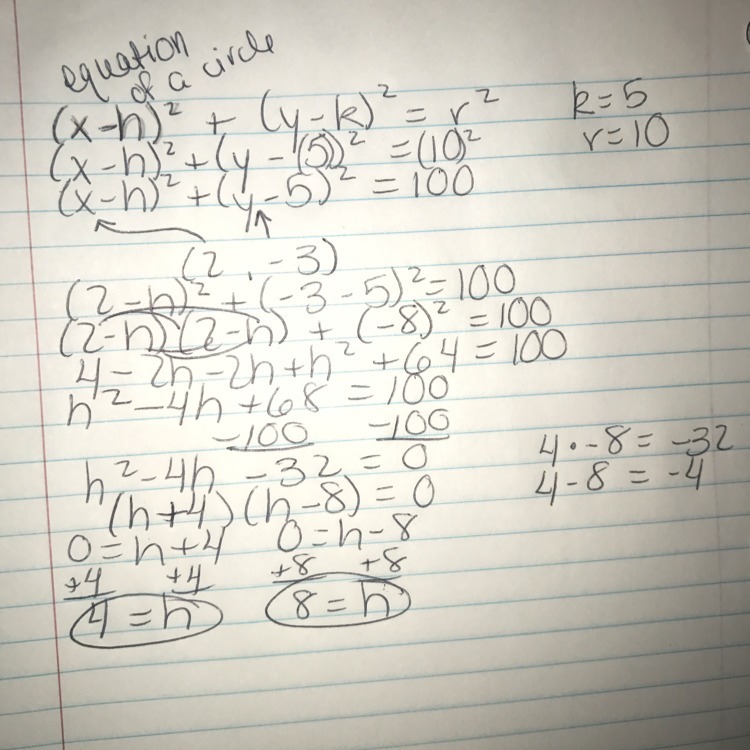 equation
of a circle
(x-h)² + (y-k)² = r²
k=5
(x-h)² + (y-(5))² = (10)²
r=10
(x-h)² + (y-5)² = 100
(2, -3)
(2-h)² + (-3-5)² = 100
(2-h)(2-h) + (-8)² = 100
4-2h-2h+h² + 64 = 100
h² -4h +68 = 100
-100 -100
h² -4h -32 = 0
4·-8 = -32
(h+4)(h-8) = 0
4-8 = -4
0=h+4 0=h-8
+4 +4 +8 +8
4=h 8=h